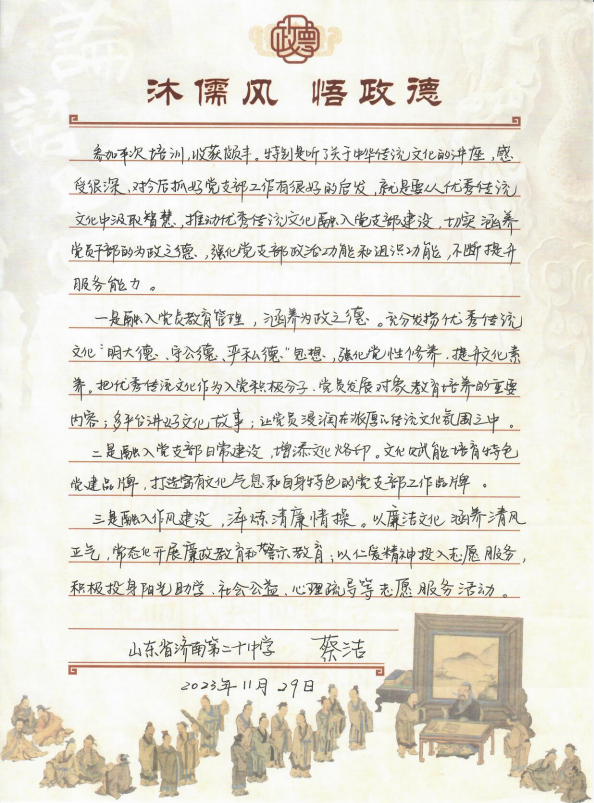 論語
政德
沐儒风 悟政德
参加本次培训，收获颇丰。特别是听了关于中华传统文化的讲座，感
受很深，对今后抓好党支部工作有很好的启发，就是要从优秀传统
文化中汲取智慧，推动优秀传统文化融入党支部建设，切实涵养
党员干部的为政之德，强化党支部政治功能和组织功能，不断提升
服务能力。
一是融入党员教育管理，涵养为政之德。充分发挥优秀传统
文化“明大德、守公德、严私德”思想，强化党性修养，提升文化素
养。把优秀传统文化作为入党积极分子、党员发展对象教育培养的重要
内容；多平台讲好文化故事；让党员浸润在浓厚的传统文化氛围之中。
二是融入党支部日常建设，增添文化烙印。文化赋能培育特色
党建品牌，打造富有文化气息和自身特色的党支部工作品牌。
三是融入作风建设，淬炼清廉情操。以廉洁文化涵养清风
正气，常态化开展廉政教育和警示教育；以仁爱精神投入志愿服务，
积极投身阳光助学、社会公益、心理疏导等志愿服务活动。
山东省济南第二十中学 蔡洁
2023年11月29日